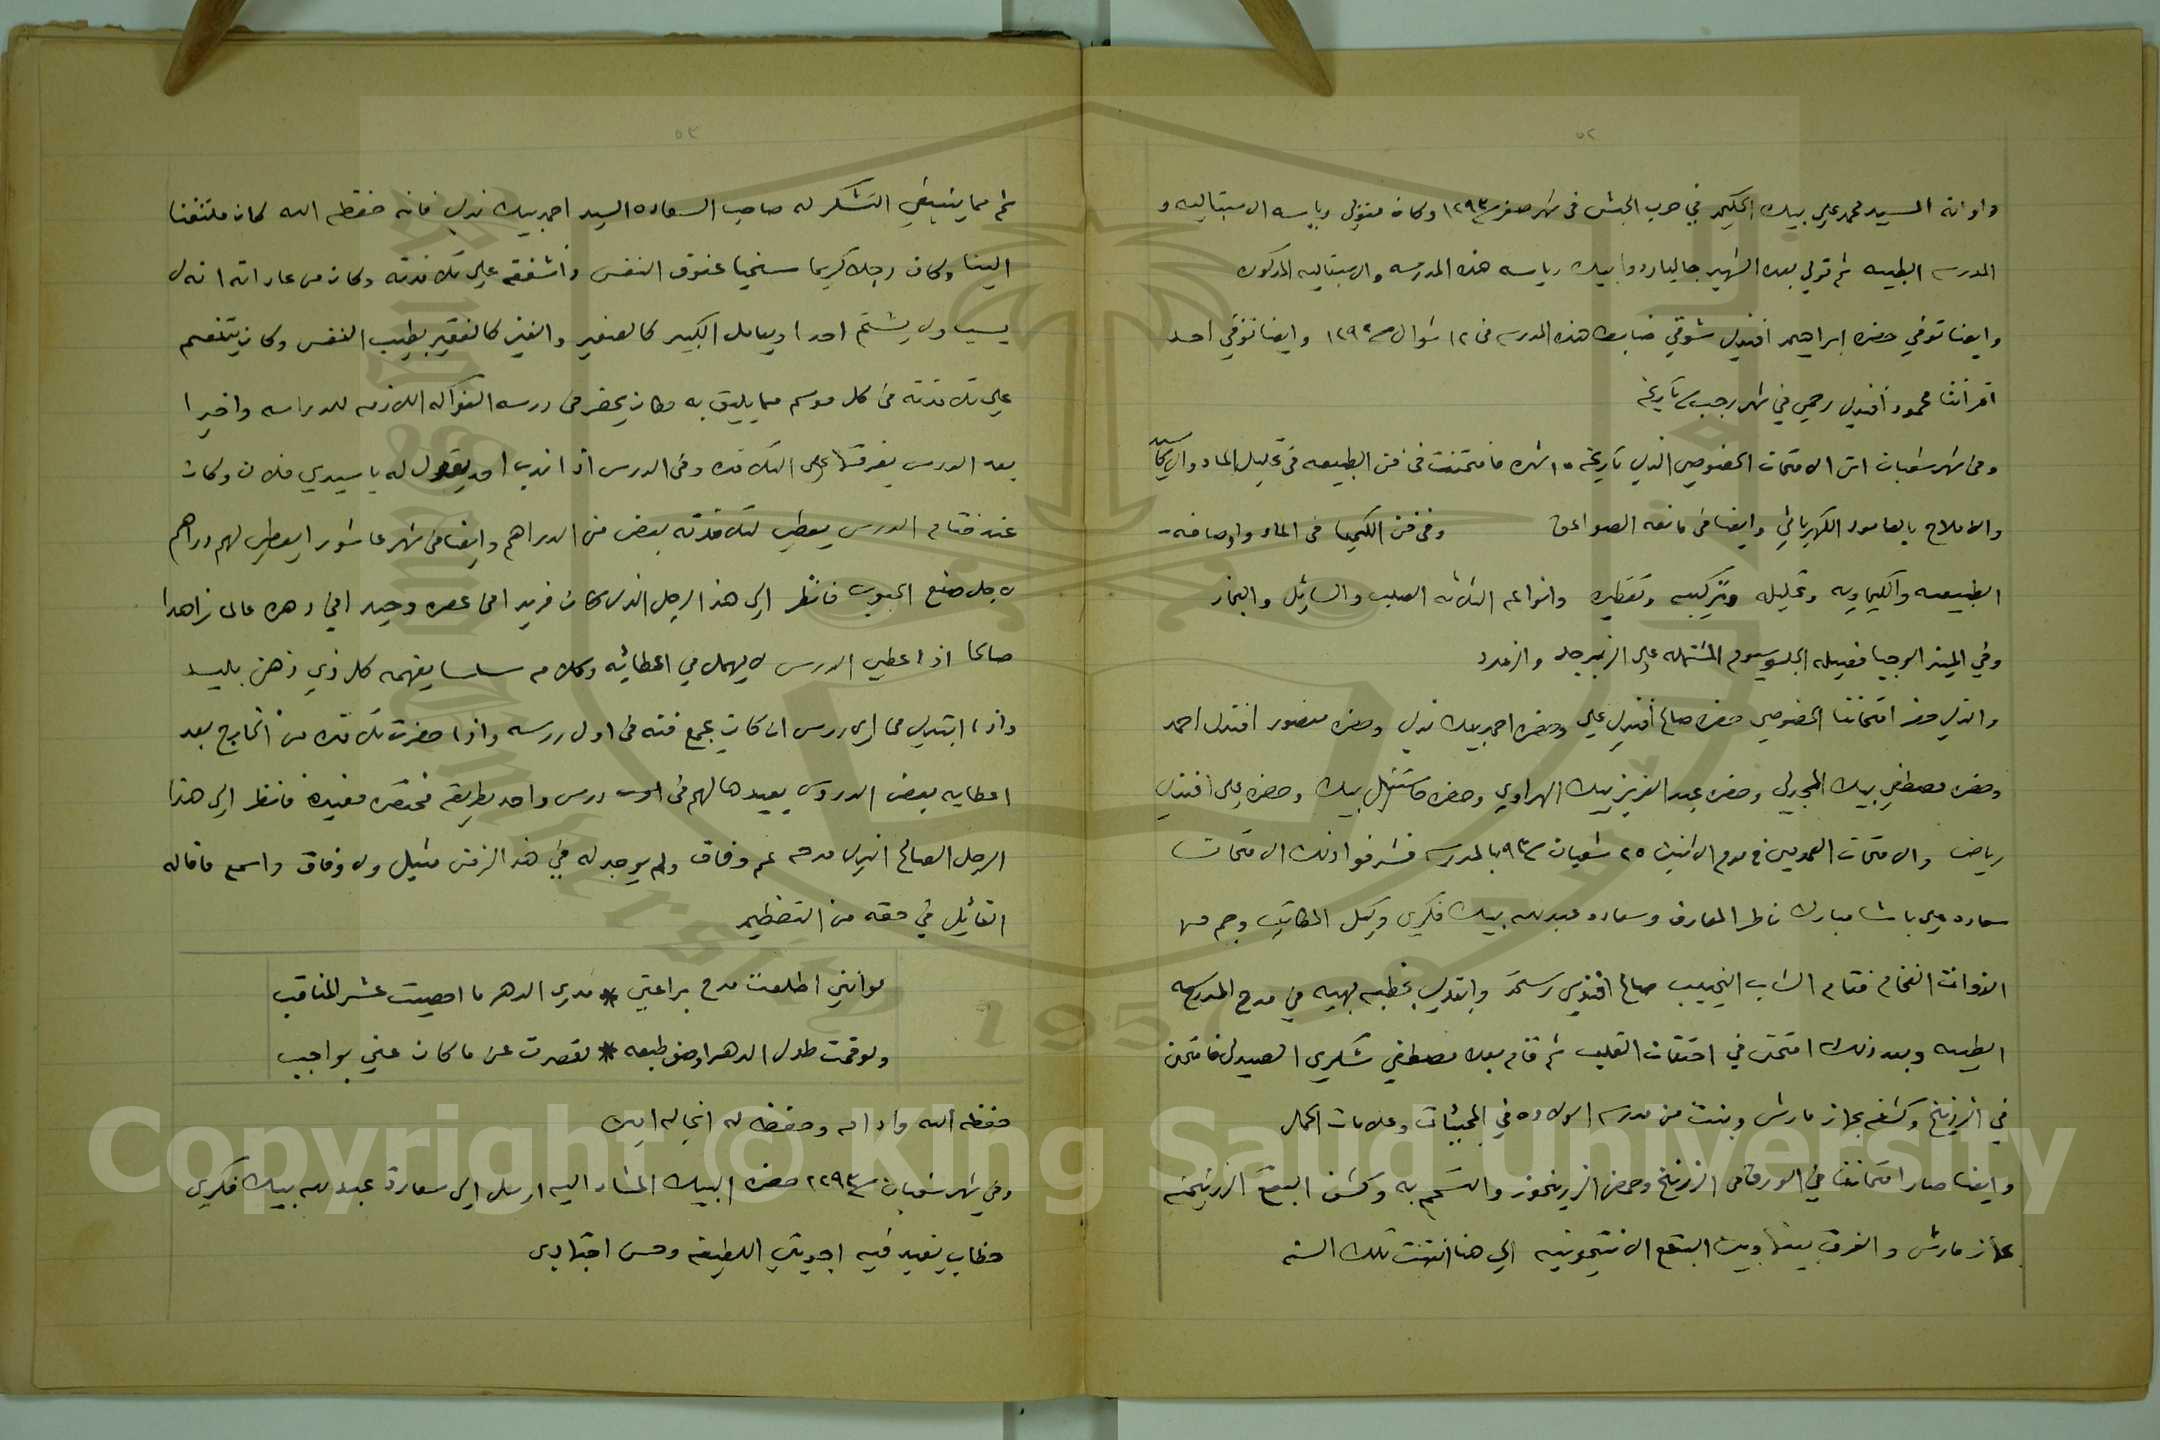 ٥٢
وادانه السيد محمد علي بيك الحكيم في حرب الحبش في شهر صفر سنة ١٢٩٣ وكان متولي رياسه الاسبتاليه و
المدرسه الطبيه ثم تولي بعده الشهير جالياردوا بيك رياسه هذه المدرسه والاسبتاليه المذكوره
وايضا توفي حضره ابراهيم افندي شوقي ضابط هذه المدرسه في ١٢ شوال سنة ١٢٩٢ وايضا توفي احد
اقراننا محمود افندي رحمي في شهر رجب تاريخه
وفي شهر شعبان اتى الامتحان الخصوصي الذي تاريخه ١٥ شهره فامتحنت في فن الطبيعه في تحليل الماء
والاملاح بالعامود الكهربائي وايضا في مانعه الصواعق وفي فن الكيميا في الماء واوصافه
الطبيعيه والكيماويه وتحليله وتركيبه وتقطيره وانواعه الثلاثه الصلب والسائل والبخار
وفي المينرالوجيا فصيله الجلوسيوم المشتمله علي الزبرجد والزمرد
والذي حضر امتحاننا الخصوصي حضره صالح افندي علي وحضره احمد بيك ندي وحضره منصور افندي احمد
وحضره مصطفي بيك المجدلي وحضره عبد العزيز بيك الهراوي وحضره جاستنيل بيك وحضره علي افندي
رياض والامتحان العمومي في يوم الاثنين ٢٥ شعبان سنة ٩٣ بالمدرسه فشرفوا ذلك الامتحان
سعاده علي باشا مبارك ناظر المعارف وسعاده عبد الله بيك فكري وكيل المكاتب وجم من
الذوات الفخام فقام الشاب النجيب صالح افندي رستم وابتدي بخطبه بهيه في مدح المدرسه
الطبيه وبعد ذلك امتحن في احتقان القلب ثم قام بعده مصطفي شكري الصيدلي فامتحن
في الزرنيخ وكشفه بجهاز مارش وبنت من مدرسه الولاده في المجيئات وعلامات الحمل
وايضا صار امتحاننا في الورق في الزرنيخ وحمض الزرنيخوز والتسمم به وكشف البقع الزرنيخيه
بجهاز مارش والفرق بينها وبين البقع الانتيمونيه الي هنا انتهت تلك السنه
٥٣
ثم مما ينبغي التشكر له صاحب السعاده السيد احمد بيك ندي فانه حفظه الله كان ملتفتا
الينا وكان رجلا كريما سخيا عفوف النفس واشفقه علي تلامذته وكان من عاداته انه لا
يسب ولا يشتم احدا ويعامل الكبير كالصغير والغني كالفقير بطيب النفس وكان يتنعم
علي تلامذته في كل موسم مما يليق به وكان يحضر في درسه الفواكه اللازمه للدراسه واخيرا
بعد الدرس يفرقها على التلامذه وفي الدرس اذا ندب احد يقول له يا سيدي فلان وكان
عند ختام الدرس يعطي لتلامذته بعض من الدراهم وايضا في شهر عاشورا يعطي لهم دراهم
لاجل صنع الحبوب فانظر الي هذا الرجل الذي كان فريدا في عصره وحيدا في دهره عالما زاهدا
صالحا اذا اعطي الدرس لا يهمل في اعطائه وكلامه سلسا يفهمه كل ذي ذهن بليد
واذا ابتدي في اي درس ان كان يجمع فنه في اول درسه واذا حضرت تلامذه من الخارج بعد
اعطايه بعض الدروس يعيدها لهم في درس واحد بطريقه مختصره مفيده فانظر الي هذا
الرجل الصالح الذي مدحه عم وفاق ولم يوجد له في هذا الزمن مثيل ولا وفاق واسمع ما قاله
القائل في حقه من التعظيم
لو انني اطلعت مدح براعتي * مدي الدهر ما احصيت عشر المناقب
ولو قمت طول الدهر اوصف طبعه * لقصرت عن ما كان عني بواجب
حفظه الله وادامه وحفظ له انجاله
وفي شهر شعبان سنة ٢٢٩٣ حضره البيك المشار اليه ارسل الي سعادة عبد الله بيك فكري
خطاب يفيد فيه اجوبتي اللطيفه وحسن اجتهادي
Copyright © King Saud University
1957